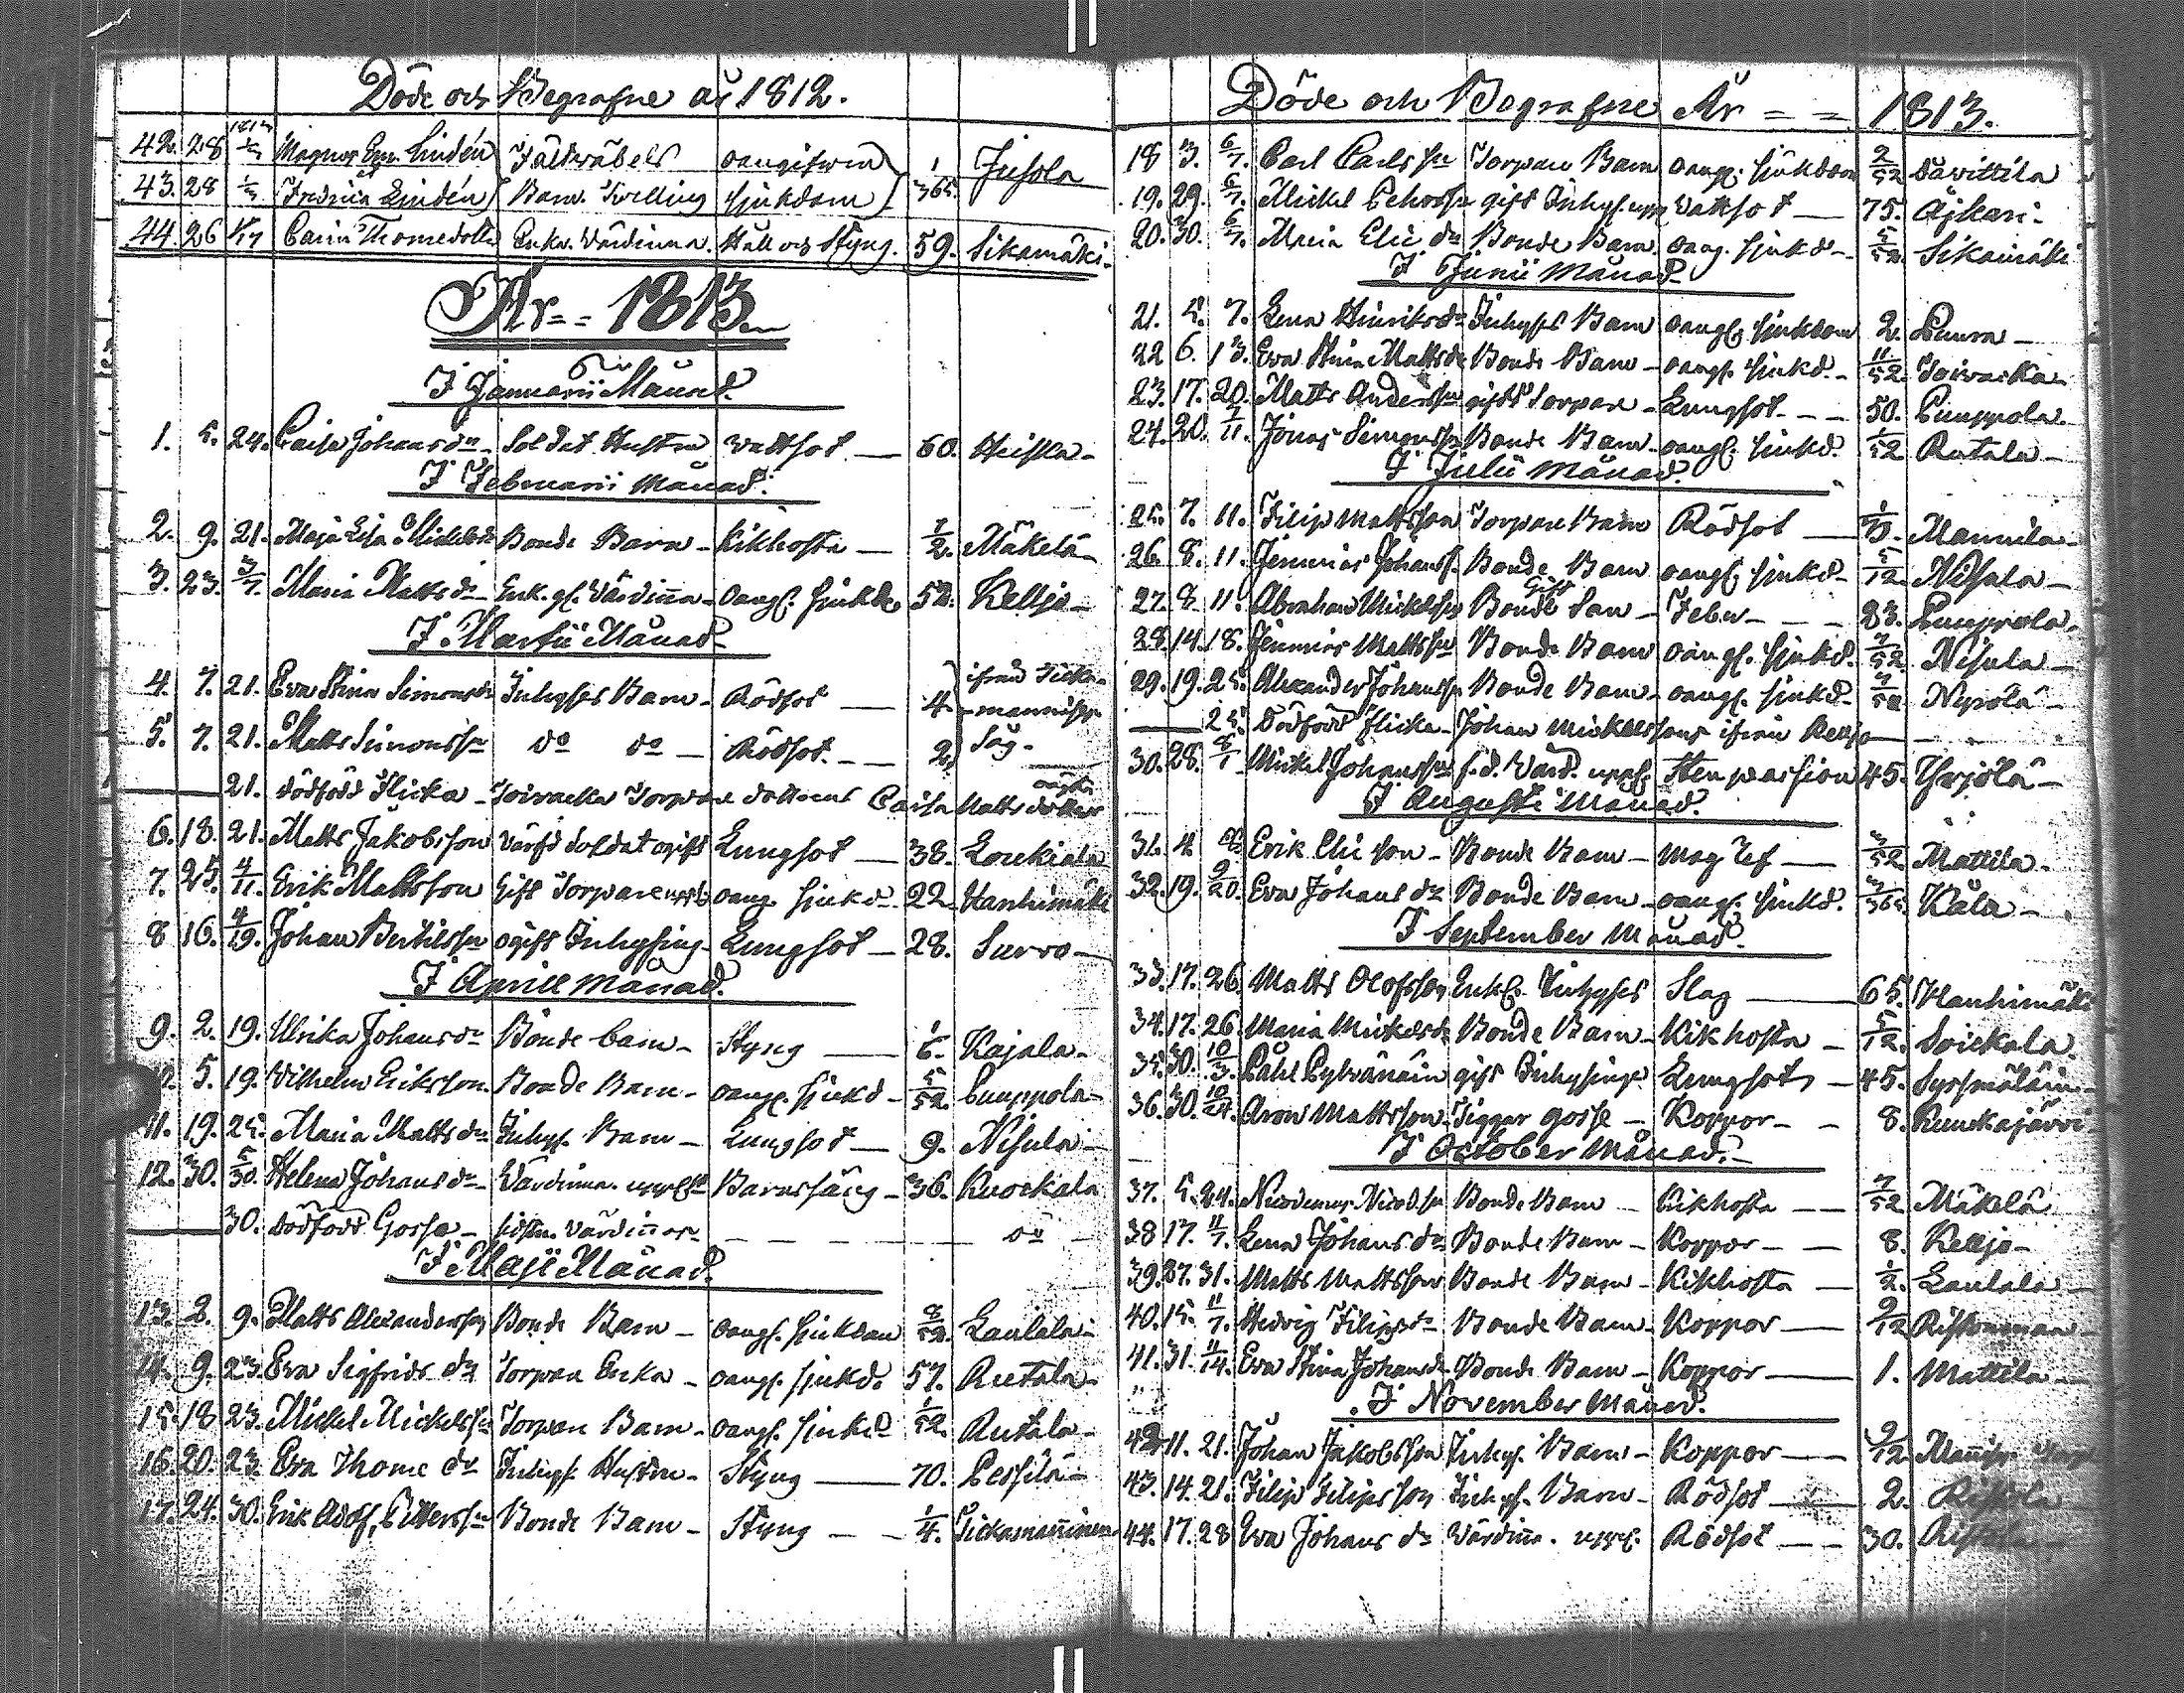 Döde och Begrafne år 1812.
1813
42. 28 1/3 Magnus Em. Lindén Fältväbels oangifven 1/365 Jusola
43. 28 1/3 Fredrica Lindén Barn. Tvelling sjukdom
44. 26 1/17 Carin Thomedotter Enka. Värdinna. Håll och Styng. 59. Sikamäki
År = = 1813.
I Januarii Månad.
1. 5. 24. Caisa Johansdr Soldat Hustru Wattsot 60. Heiskla
I Februarii Månad.
2. 9. 21. Maja Lisa Mickelsdr Bonde Barn Kikhosta 1/2. Mäkelä
3. 23. 3/7. Maria Mattsdr Enk. gl. Värdinna oangf. sjukdo 52. Kelljo
I Martii Månad
4. 7. 21. Eva Stina Simonsdr Inhyses Barn Rödsot 4. ifrån Ticka-
mannisp.
5. 7. 21. Matts Simonssn do do Rödsot 2. Såg.
21. dödfödd Flicka Toivacka Torpare dottrens Caisa Matts dotter
6. 18. 21. Matts Jakobsson Värfd Soldat ogift Lungsot 38. Loukiala
7. 25. 4/11. Erik Mattsson Gift Torpare uppsb oang. sjukd. 22. Hanhimäki
8 16. 4/19. Johan Bertilssn ogift Inhysing Lungsot 28. Survo
I Aprill månad.
9. 2. 19. Ulrika Johansdr Bonde barn Styng 1/6. Kajala
5. 19. Vilhelm Eriksson Bonde Barn oangf. sjukd 5/52. Puuppola
11. 19. 25. Maria Mattsdr Inhys. Barn Lungsot 9. Nisula
12. 30. 5/30. Helena Johansdr Värdinna Barnsäng 36. Ruokala
30. dödfödd Gosse sidstn. Värdinnas do
I Maji Månad.
13. 2. 9. Matts Alexandersson Bonde Barn oangf. sjukdom 8/52. Lautala
14. 9. 23. Eva Sigfrids dr Torpare Enka oangf. sjukd. 57. Rutala
15. 18. 23. Mickel Mickelssn Torpare Barn oangf. sjukd 1/52. Rutala
16. 20. 23. Eva Thome dr Inhys. Hustru Styng 70. Pessilä
17. 24. 30. Erik Adolf Petterssn Bonde Barn Styng 1/4. Tickamanninen
Döde och Begrafne År = = 1813.
18 3. 6/7. Carl Carlssn Torpare Barn oangf. sjukdom 2/52 Davittila
19. 29. 6/7. Mickel Pehrssn gift Inhys. Wattsot 75. Äjkäri
20. 30. 6/7. Maria Elie dr Bonde Barn oang. sjukd 5/52 Sikamäki
I Junii månad
21. 5. 7. Lena Hinriksdr Inhyses Barn oangf. sjukdom 2.
22 6. 13. Eva Stina Mattsdr Bonde Barn oangf. sjukd. 11/52 Toivacka
23. 17. 20. Matts Anderssn gift Torpare Lungsot 50. Puuppola
24. 20. 7/11. Jonas Simonssn Bonde Barn oangf. sjukd. 1/52 Rutala
I Julii månad.
25. 7. 11. Filip Mattsson Torpare Barn Rödsot Mannila
26. 8. 11. Jeremias Johanss. Bonde Barn oangf. sjukd 5/12 Nisula
27. 8 11. Abraham Mickelssn Gift Bonde Son Feber 23. Puuppola
28. 14. 18. Jeremias Mattssn Bonde Barn oangf. sjukd. 7/52 Nisula
29. 19. 25. Alexander Johanssn Bonde Barn oangf. sjukd. 7/52 Nypölä
25. Dödfödd flicka Johan Mickelssons ifrån Kelljo
30. 28. 8/1 Mickel Johanssn f.d. Värd. uppf. Stenpassion 45. Yrjölä
I Augusti månad.
31. 4 Erik Elie son Bonde Barn Mag Ref 3/52 Mattila
32. 19. 9/20. Eva Johans dr Bonde Barn oangf. sjukd. 3/365 Kala
I September Månad.
33. 17. 26. Matts Olofsson Enkl. Inhyses Slag 65. Hanhimäki
34. 17. 26. Maria Mickelsdr Bonde Barn Kikhosta 5/12. Soickala
35. 30. 10/3. Påhl Pylvänäin gift Inhysing Lungsot 45. Syssmäläin
36. 30. 10/24. Aron Mattsson Tiggar gosse Koppor 8. Ruuckajärvi
I October Månad.
37. 5. 24. Bonde Barn Kikhosta 7/52 Mäkelä
38 17. 11/7. Lena Johans dr Bonde Barn Koppor 8. Kelljo
39. 27. 31. Matts Mattsson Bonde Barn Kikhosta 1/2. Lautala
40. 15. 11/7. Hedvig Filipsdr Bonde Barn Koppor 9/12
41. 31. 11/14. Eva Stina Johansdr Bonde Barn Koppor 1. Mattila
I November Månad.
42. 11. 21. Johan Jakobsson Inhys. Barn Koppor 9/12
43. 14. 21. Filip Filipsson Inhys. Barn Rödsot 2. Ristola
44. 17. 28 Eva Johans dr Värdinn. uppf. Rödsot 30. Ristola